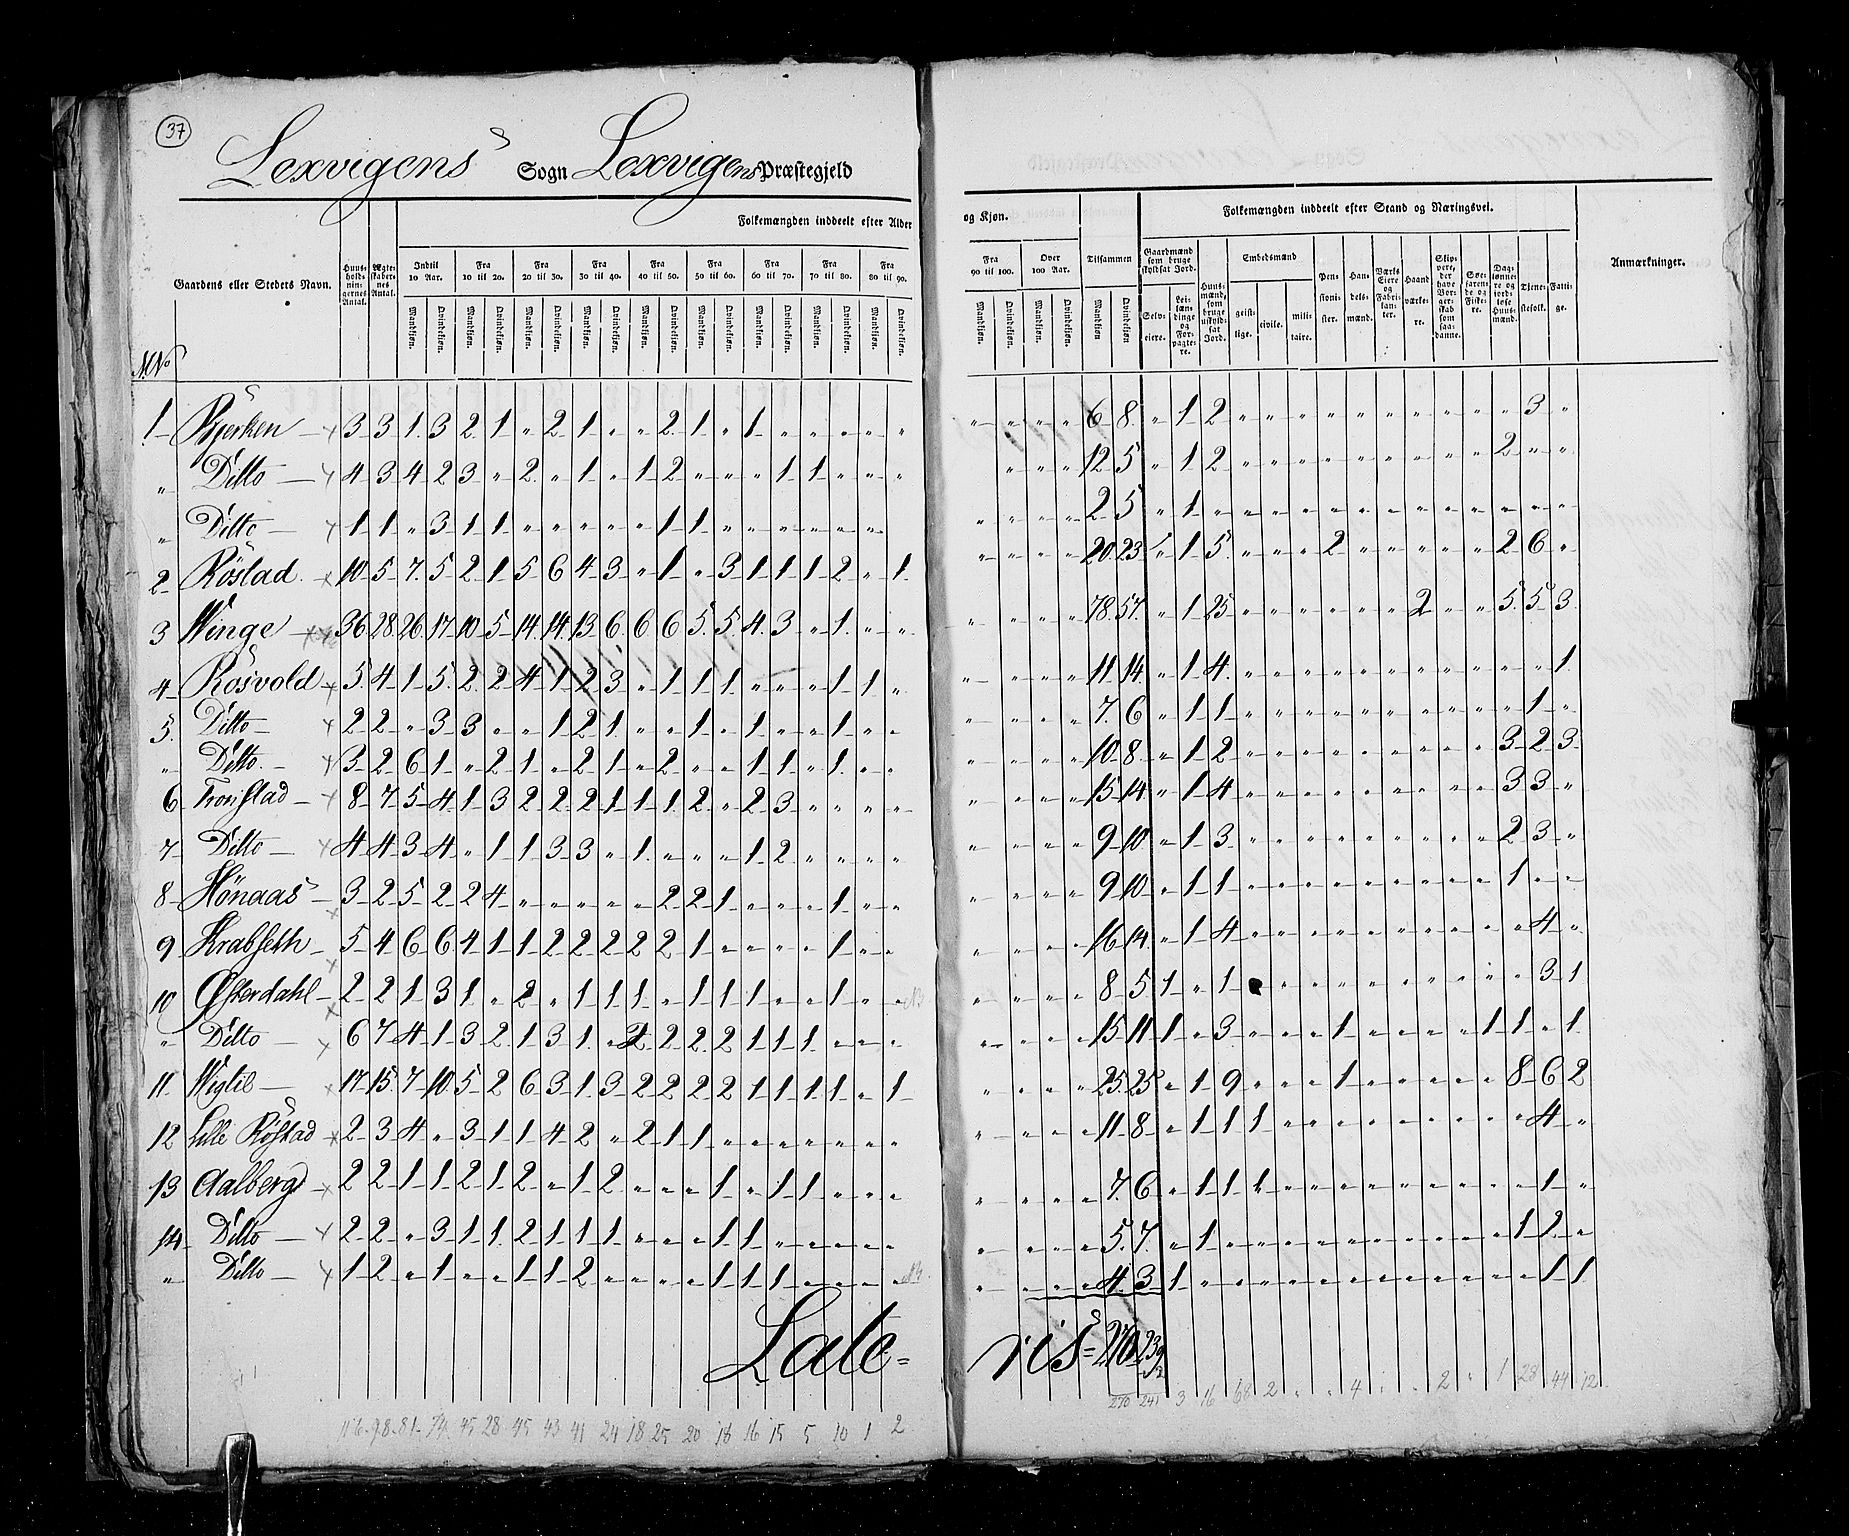 37
Lexvigens Sogn Lexvigens Præstegjeld
Folkemængden inddeelt efter Alder og Kjøn.
Folkemængden inddeelt efter Stand og Næringsvei.
M.No Gaardens eller Stedets Navn. Huus-holdningernes Antal. Ægteskabernes Antal.
Indtil 10 Aar. Fra 10 til 20. Fra 20 til 30. Fra 30 til 40. Fra 40 til 50. Fra 50 til 60. Fra 60 til 70. Fra 70 til 80. Fra 80 til 90. Fra 90 til 100. Over 100 Aar. Tilsammen
Mandkiøn. Qvindekiøn.
Gaardmænd som bruge skyldsat Jord. Selveiere. Leilændinge og Forpagtere. Huusmænd, som bruge uskyldsat Jord. Embedsmænd geistlige. civile. militaire. Pensionister. Handelsmænd. Værks Eiere og Fabrikanter. Haandværkere. Tjenestefolk. Fattige. Anmærkninger.
1 Bjerken 3 3 1 3 2 1 " 2 1 " " 2 1 " 1 " " " " " " " " " 6 8 " 1 2 " " " " " " " " " " 3 "
" Ditto 4 3 4 2 3 " 2 " 1 " 1 2 " " " 1 1 " " " " " " 12 5 " 1 2 " " " " " " " " " 2 " "
" Ditto 1 1 " 3 1 1 " " " " " 1 1 " " " " " " " " " " 2 5 " 1 " " " " " " " " " " " " "
2 Röstad 10 5 7 5 2 1 5 6 4 3 " 1 " 3 1 1 1 2 " 1 " " " " 20 23 " 1 5 " " " 2 " " " " " 2 6 "
3 Winge 36 28 26 17 10 5 14 14 13 6 6 6 5 5 4 3 " 1 " " " " " " 78 57 " 1 25 " " " " " " 2 " " 5 5 3
4 Rosvold 5 4 1 5 2 2 4 1 2 3 " 1 1 1 " " " 1 1 " " " " " 11 14 " 1 4 " " " " " " " " " " " 1
5 Ditto 2 2 " 3 3 " " 1 2 1 " " 1 " 1 " " 1 " " " " " " 7 6 " 1 1 " " " " " " " " " " 1 "
" Ditto 3 2 6 1 " 2 1 " 2 1 " 2 " " 1 1 " 1 " " " " " " 10 8 " 1 2 " " " " " " " " " 3 2 3
6 Tronstad 8 7 5 4 1 3 2 2 2 1 1 1 2 " 2 3 " " " " " " " " 15 14 " 1 4 " " " " " " " " " 3 3 "
7 Ditto 4 4 3 4 " 1 1 3 3 " 1 " " " 1 2 " " " " " " " " 9 10 " 1 3 " " " " " " " " " 2 3 "
8 Hönaas 3 2 5 2 2 4 " " " " " 2 2 1 " " " 1 " " " " " " 9 10 " 1 1 " " " " " " " " " 1 " "
9 Krabseth 5 4 6 6 4 1 1 2 2 2 2 2 1 " " " " 1 " " " " " " 16 14 " 1 4 " " " " " " " " " " 4 "
10 Østerdahl 2 2 1 3 1 " 2 " 1 1 1 " 1 1 1 " " 1 " " " " " " 8 5 1 " 1 " " " " " " " " " 3 1
" Ditto 6 7 4 1 3 2 1 3 1 " 2 2 2 2 1 1 1 " " " " " " " 15 11 1 " 3 " " " 1 " " " " 1 1 " 1
11 Wigtil 17 15 7 10 5 2 6 3 1 3 2 2 2 2 1 1 1 1 " 1 " " " " 25 25 " 1 9 " " " 1 " " " " " 8 6 2
12 Lille Röstad 2 3 4 " 3 1 1 4 2 " 2 1 1 " " " " " " " " " " " 11 8 " 1 1 1 " " " " " " " " " 4 "
13 Aalberg 2 2 1 1 2 1 2 " 1 2 " " " 1 " 1 1 " " " " " " " 7 6 " 1 1 1 " " " " " " " " " 1 "
14 Ditto 2 2 " 3 1 1 2 1 1 1 " " " 1 1 " " " " " " " " " 5 7 " 1 " " " " " " " " " " 1 2 "
" Ditto 1 2 " 1 " " 1 1 2 " " " " 1 1 1 " " " " " " " " 4 3 1 " " " " " " " " " " " " 1 1
Late=ris= 270
116 98 81 74 45 28 45 43 41 24 18 25 20 18 16 15 5 10 1 2 270 241 3 16 68 2 " " 4 " " 2 " 1 28 44 12